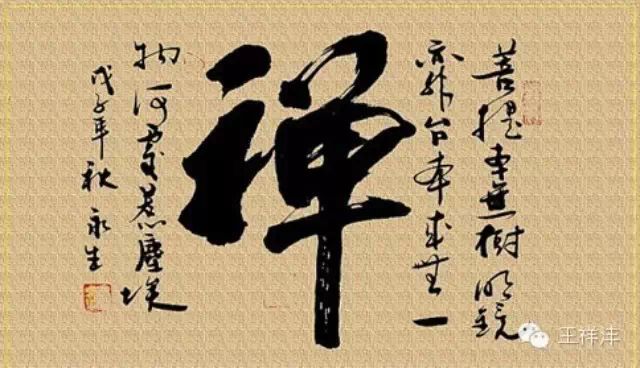 菩提本無樹明鏡
亦非台本来無一
禅
物何處惹塵埃
戊子年秋 永生
王祥沣